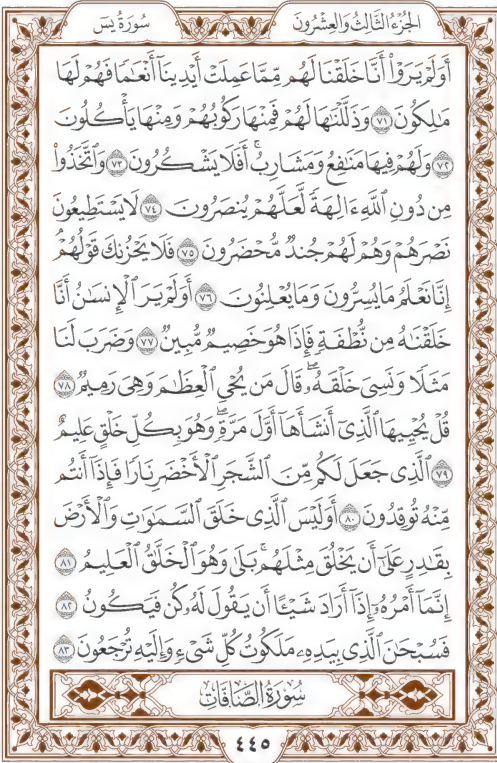 الجُزْءُ الثَّالِثُ وَالعِشْرُونَ سُورَةُ يسٓ
أَوَلَمْ يَرَوْا۟ أَنَّا خَلَقْنَا لَهُم مِّمَّا عَمِلَتْ أَيْدِينَآ أَنْعَـٰمًا فَهُمْ لَهَا
مَـٰلِكُونَ ٧١ وَذَلَّلْنَـٰهَا لَهُمْ فَمِنْهَا رَكُوبُهُمْ وَمِنْهَا يَأْكُلُونَ
٧٢ وَلَهُمْ فِيهَا مَنَـٰفِعُ وَمَشَارِبُ ۖ أَفَلَا يَشْكُرُونَ ٧٣ وَٱتَّخَذُوا۟
مِن دُونِ ٱللَّهِ ءَالِهَةً لَّعَلَّهُمْ يُنصَرُونَ ٧٤ لَا يَسْتَطِيعُونَ
نَصْرَهُمْ وَهُمْ لَهُمْ جُندٌ مُّحْضَرُونَ ٧٥ فَلَا يَحْزُنكَ قَوْلُهُمْ ۘ
إِنَّا نَعْلَمُ مَا يُسِرُّونَ وَمَا يُعْلِنُونَ ٧٦ أَوَلَمْ يَرَ ٱلْإِنسَـٰنُ أَنَّا
خَلَقْنَـٰهُ مِن نُّطْفَةٍ فَإِذَا هُوَ خَصِيمٌ مُّبِينٌ ٧٧ وَضَرَبَ لَنَا
مَثَلًا وَنَسِىَ خَلْقَهُۥ ۖ قَالَ مَن يُحْىِ ٱلْعِظَـٰمَ وَهِىَ رَمِيمٌ ٧٨
قُلْ يُحْيِيهَا ٱلَّذِىٓ أَنشَأَهَآ أَوَّلَ مَرَّةٍ ۖ وَهُوَ بِكُلِّ خَلْقٍ عَلِيمٌ
٧٩ ٱلَّذِى جَعَلَ لَكُم مِّنَ ٱلشَّجَرِ ٱلْأَخْضَرِ نَارًا فَإِذَآ أَنتُم
مِّنْهُ تُوقِدُونَ ٨٠ أَوَلَيْسَ ٱلَّذِى خَلَقَ ٱلسَّمَـٰوَٰتِ وَٱلْأَرْضَ
بِقَـٰدِرٍ عَلَىٰٓ أَن يَخْلُقَ مِثْلَهُم ۚ بَلَىٰ وَهُوَ ٱلْخَلَّـٰقُ ٱلْعَلِيمُ ٨١
إِنَّمَآ أَمْرُهُۥٓ إِذَآ أَرَادَ شَيْـًٔا أَن يَقُولَ لَهُۥ كُن فَيَكُونُ ٨٢
فَسُبْحَـٰنَ ٱلَّذِى بِيَدِهِۦ مَلَكُوتُ كُلِّ شَىْءٍ وَإِلَيْهِ تُرْجَعُونَ ٨٣
سُورَةُ الصَّافَّاتِ
٤٤٥